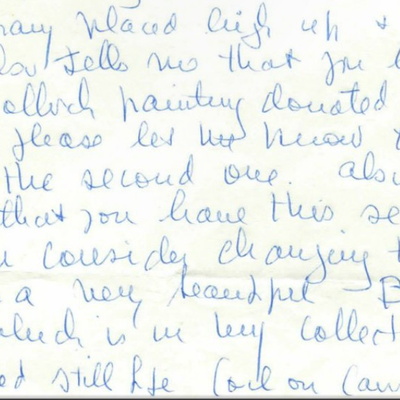 many placed high up &
also tells me that you
ollock painting donated
please let me know
the second one. also
that you have this se
consider changing t
a very beautiful B
which is in my collect
ed still life (oil on can